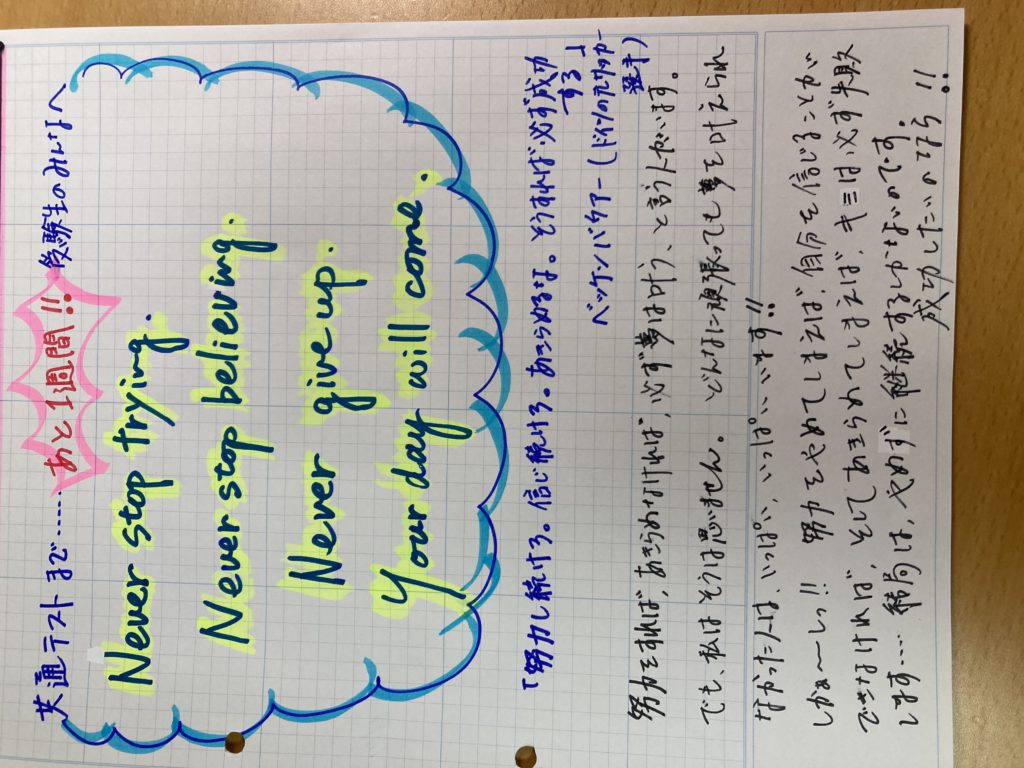 共通テストまで……あと1週間!! 受験生のみんなへ
Never stop trying.
Never stop believing.
Never give up.
Your day will come.
「努力し続けろ。信じ続けろ。あきらめるな。そうすれば必ず成功する」
ベッケンバウアー(ドイツのサッカー選手)
努力をすれば、あきらめなければ、必ず夢は叶う、と言う人がいます。
でも、私はそうは思いません。どんなに頑張っても夢を叶えられ
なかった人は、いっぱい、いっぱいいます!!
しかぁ〜〜しっ!! 努力をやめてしまえば、自分を信じることが
できなければ、そしてあきらめてしまえば、キミは必ず失敗
します… 結局は、やめずに継続するしかないのです。
成功したいのなら!!